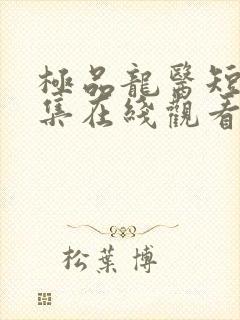 極品龍醫短
集在綫觀看
松葉博